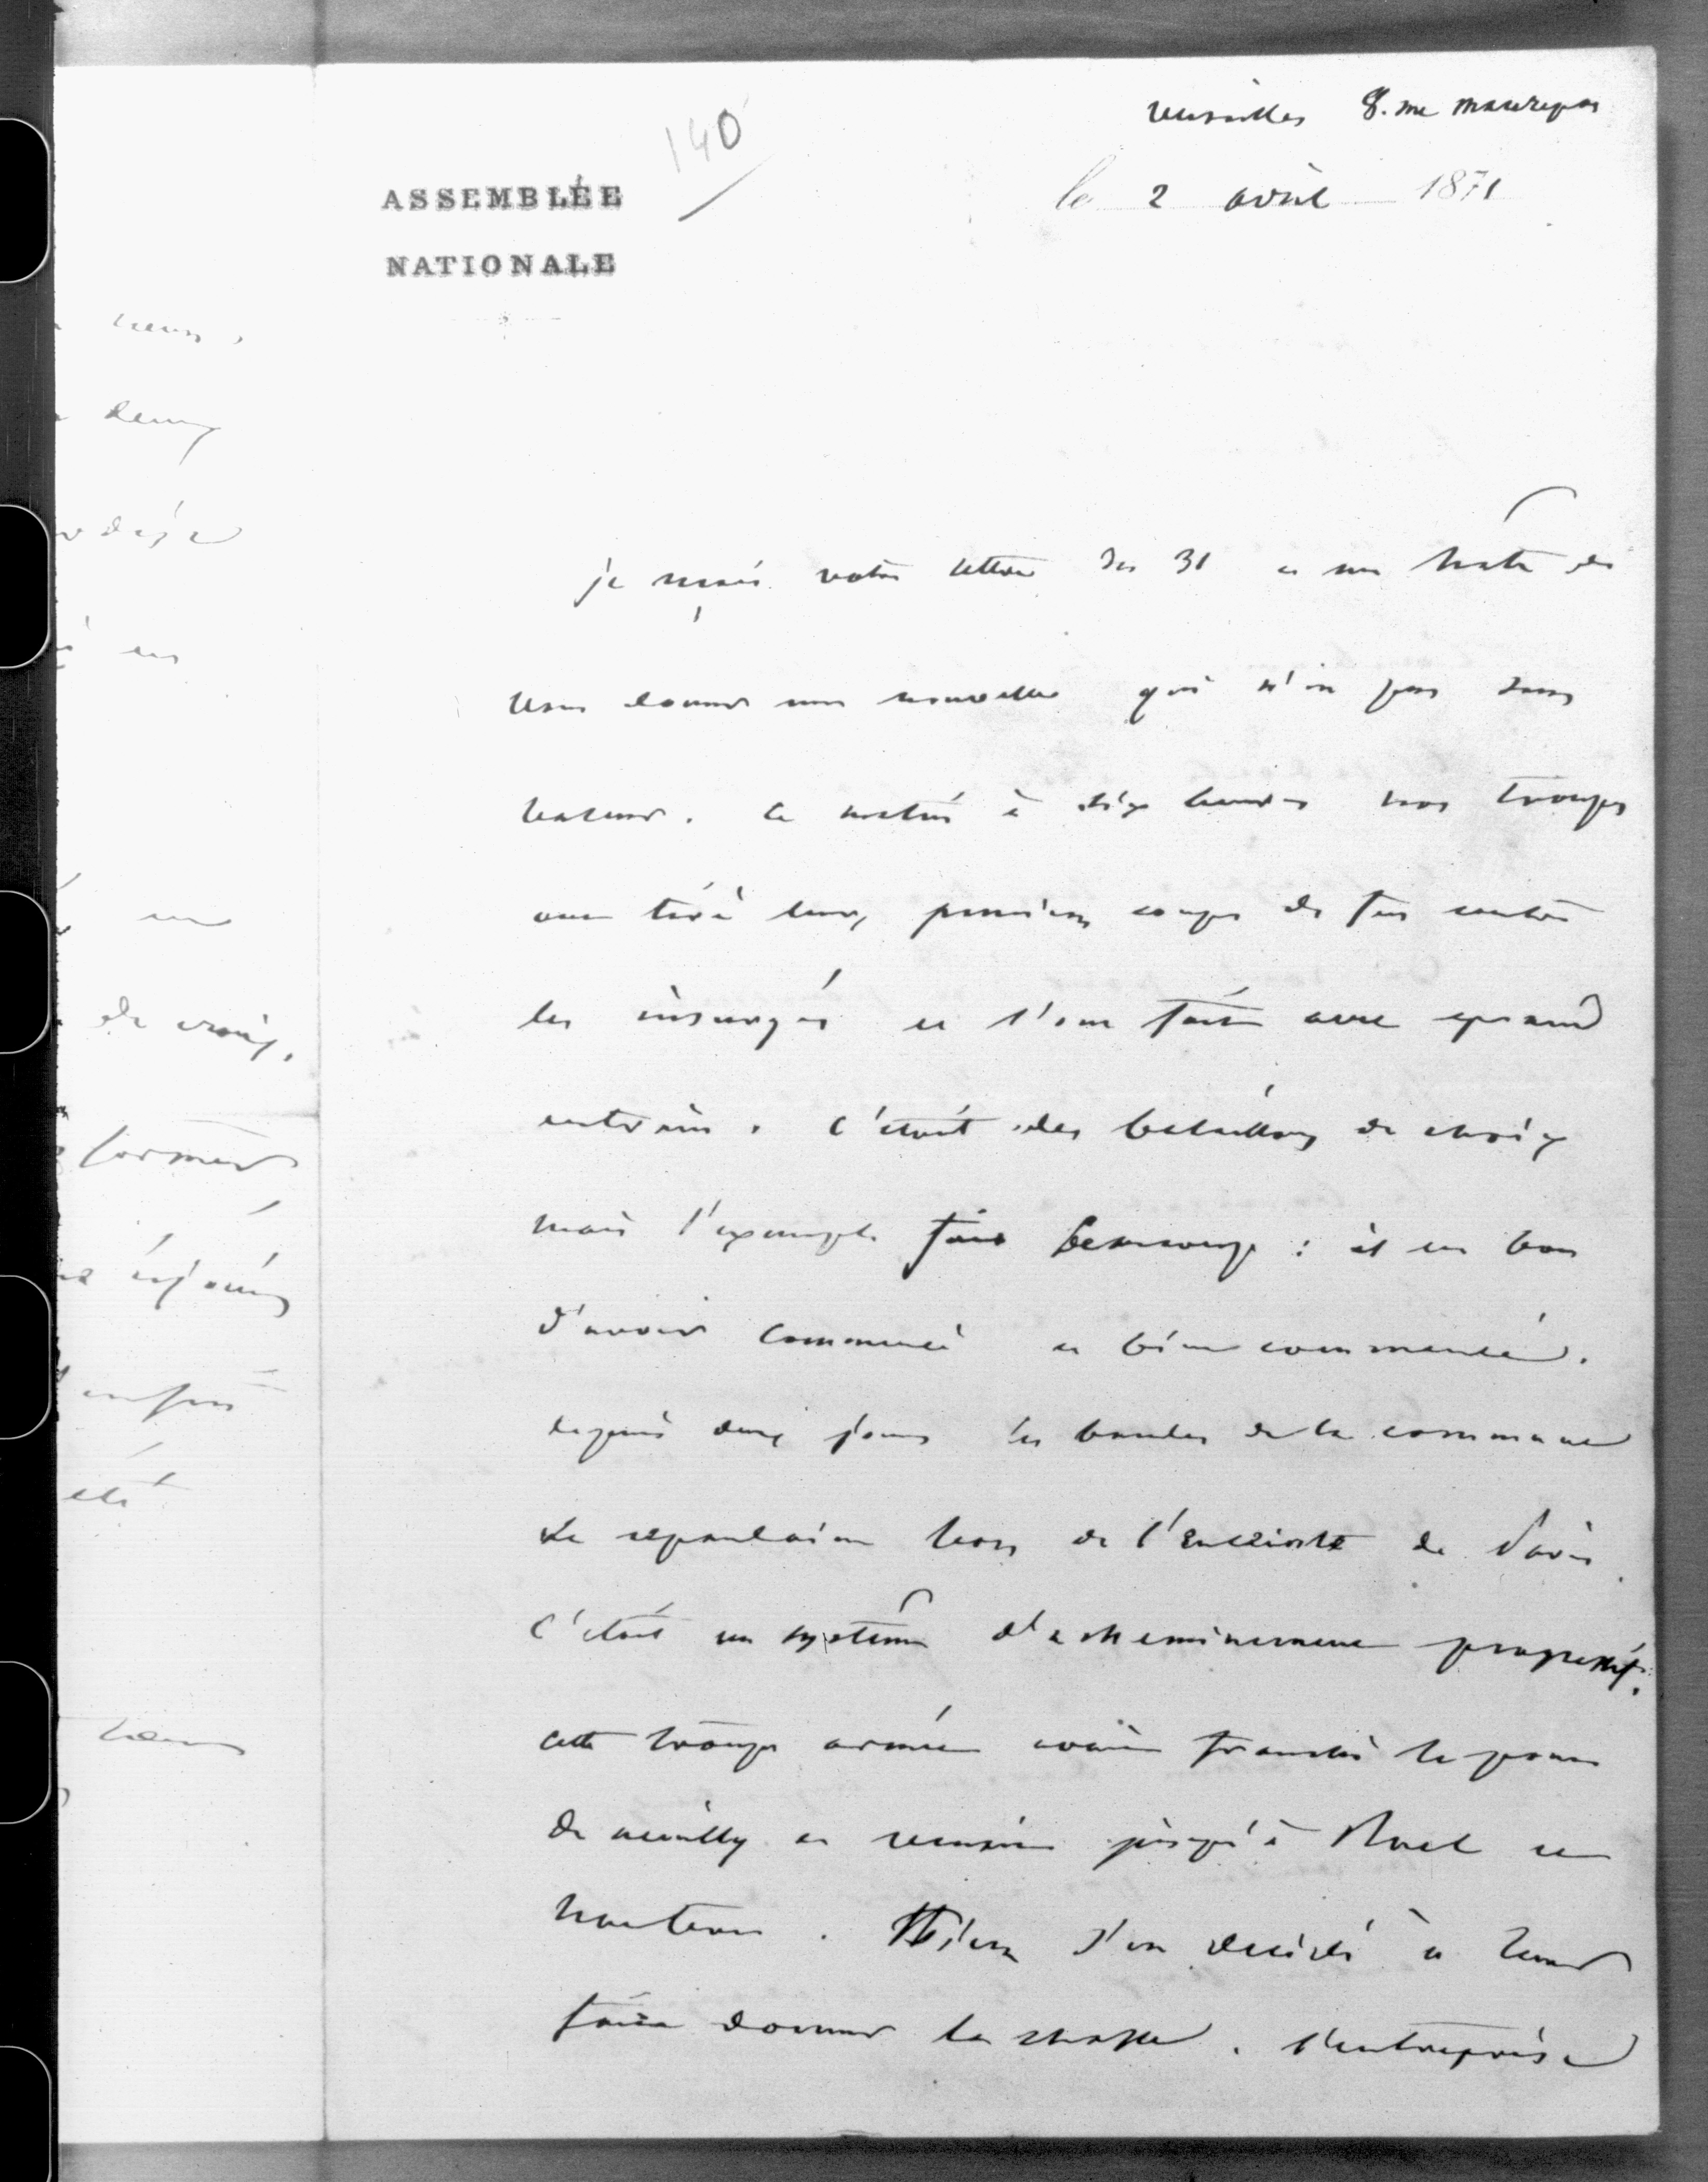 140
Versailles 8. rue Maurepas
ASSEMBLÉE
NATIONALE
le 2 avril 1871
je reçois votre lettre du 31 et me hâte de
vous donner une nouvelle qui n'est pas sans
valeur. ce matin à dix heures nos troupes
ont tiré leurs premiers coups de feu contre
les insurgés et l'ont fait avec grand
entrain. c'était des bataillons de choix
mais l'exemple fait beaucoup : il est bon
d'avoir commencé et bien commencé.
depuis deux jours les bandes de la commune
se répandaient hors de l'enceinte de Paris
c'était un système d'acheminement progressif.
cette troupe armée avait franchi le pont
de neuilly et venait jusqu'à Rueil et
Nanterre. Thiers s'est décidé à leur
faire donner la chasse. l'entreprise
déjà
de croix.
former
été